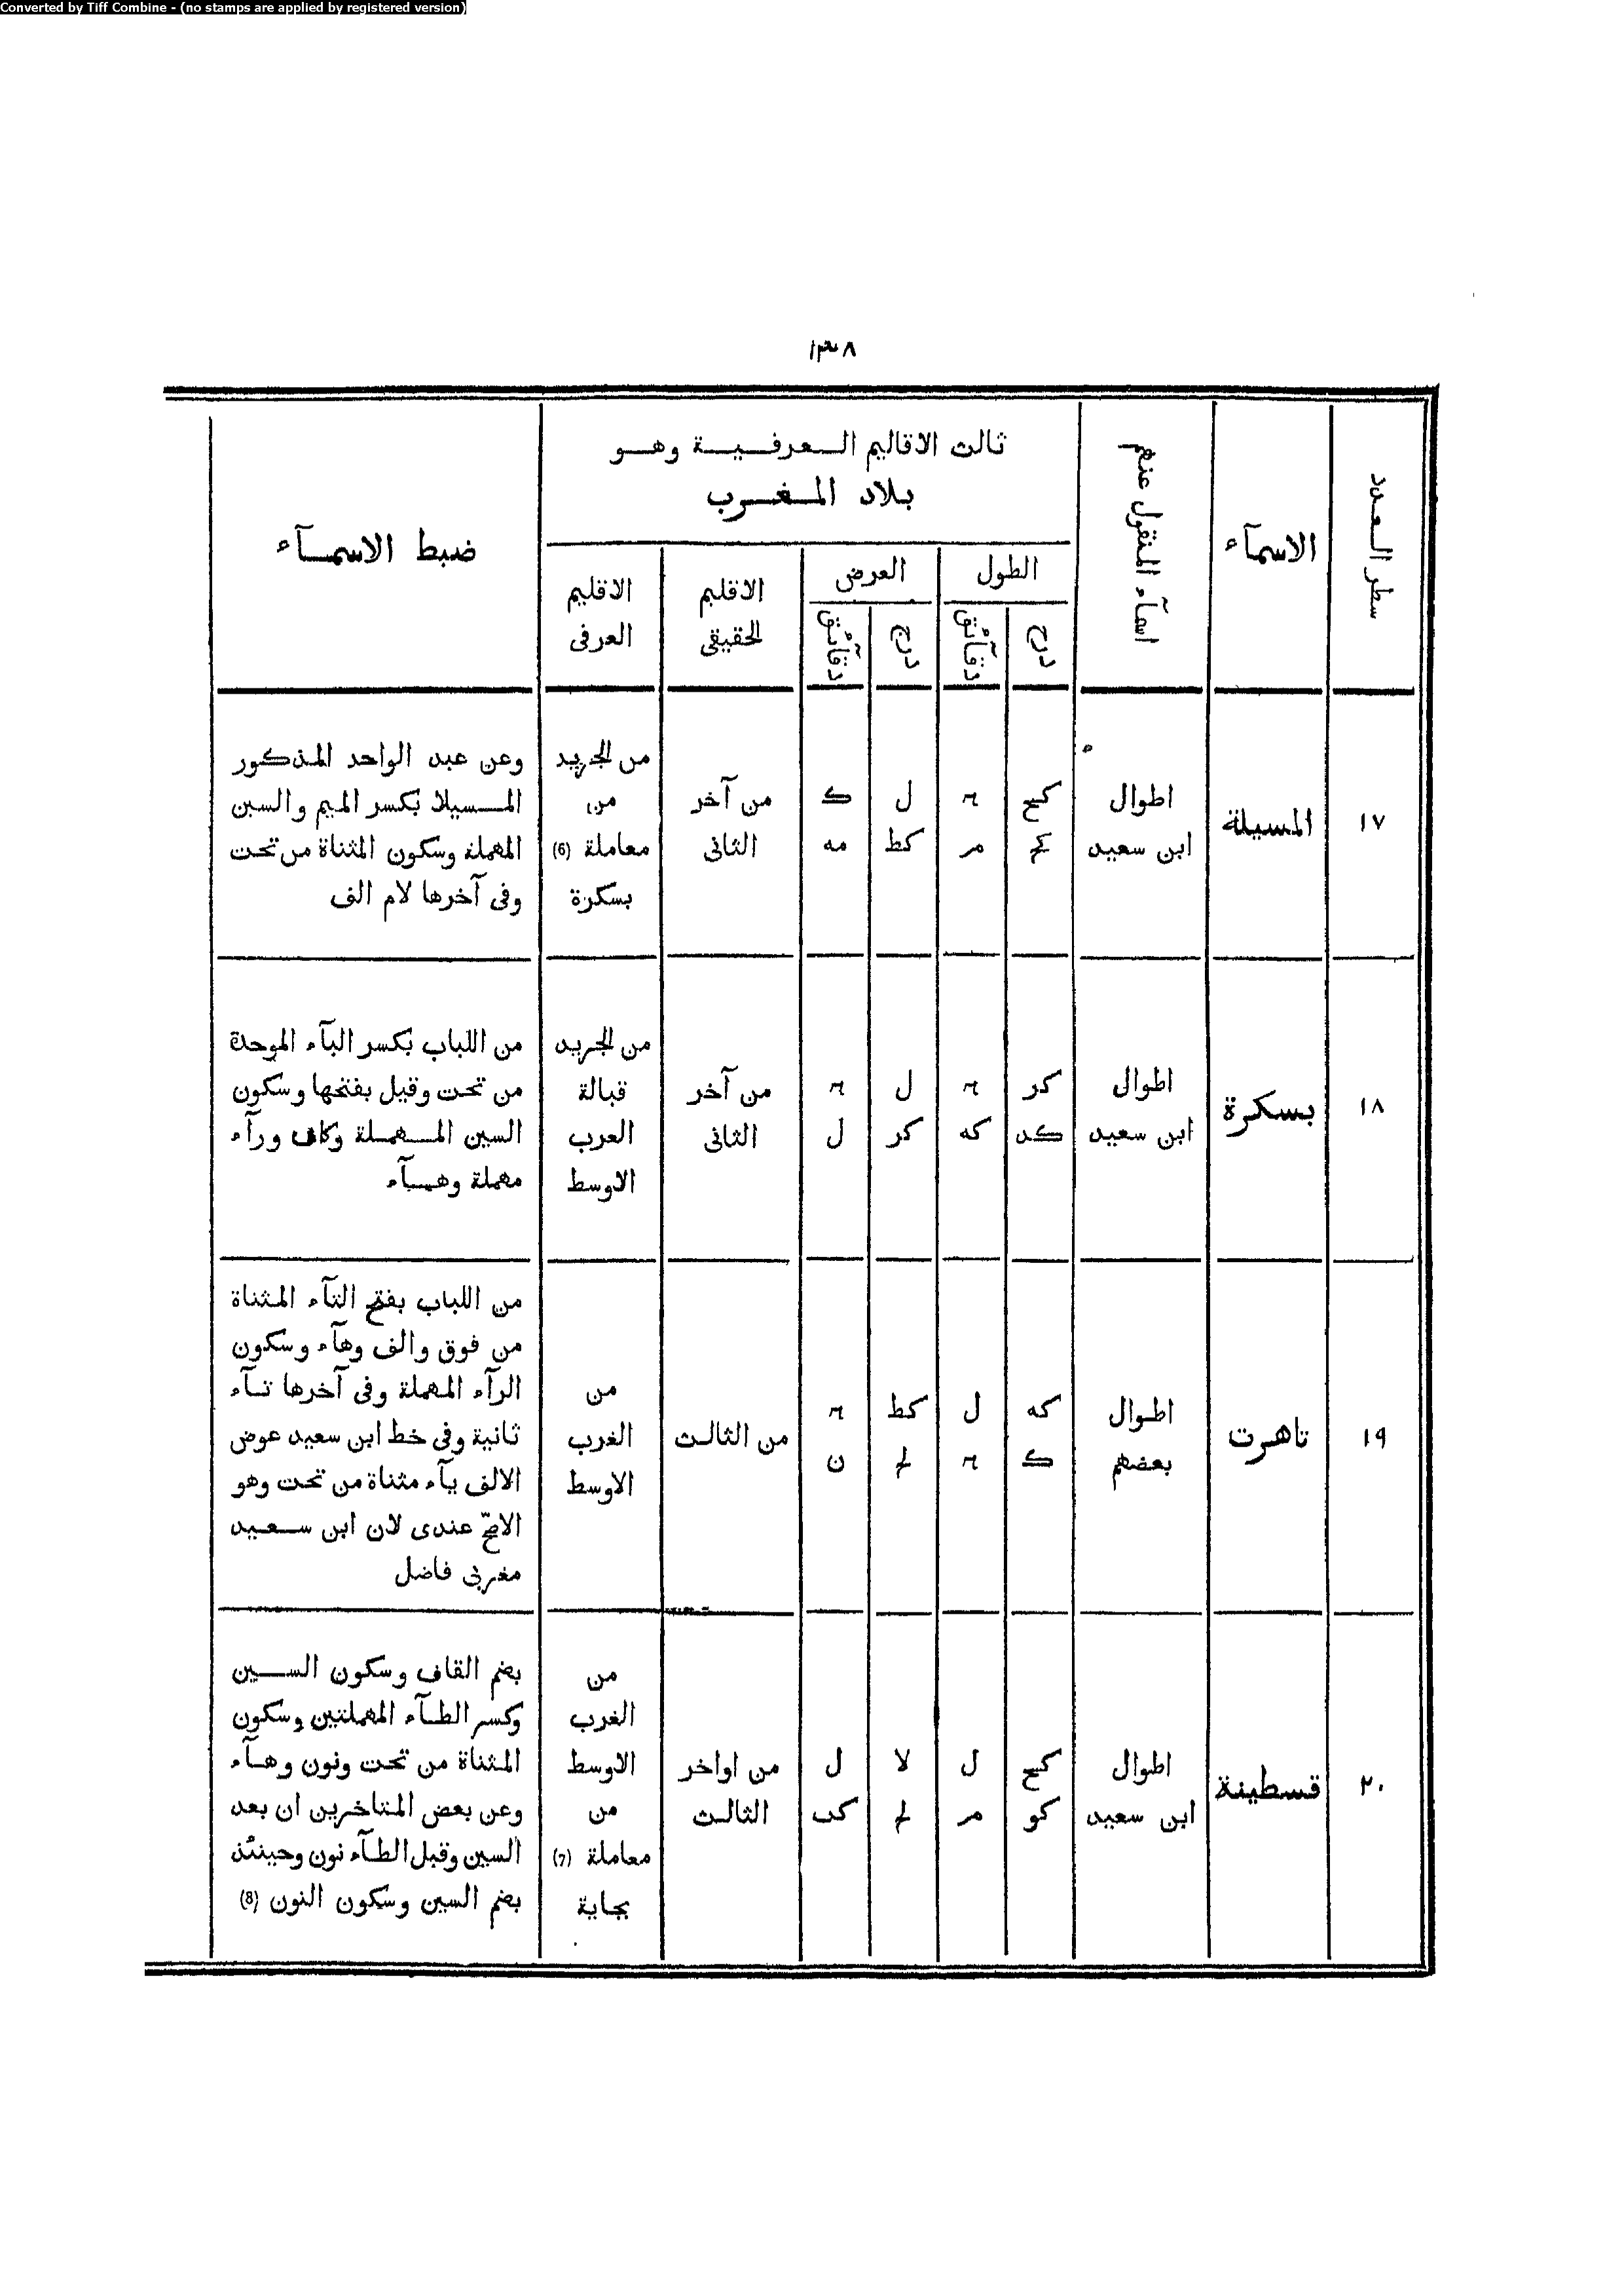 Converted by Tiff Combine - (no stamps are applied by registered version)
١٣٨
سطر العدد
الاسمآء
اسمآء المنقول عنهم
ثالث الاقاليم العرفية وهو
بلاد المغرب
الطول
درج
دقآئق
العرض
درج
دقآئق
الاقليم
الحقيقى
الاقليم
العرفى
ضبط الاسمآء
١٧
المسيلة
اطوال
ابن سعيد
كح
م
ل
كط
ك
مه
من آخر
الثانى
من الجريد
من
معاملة (6)
بسكرة
وعن عبد الواحد المذكور
المسيلا بكسر الميم والسين
المهملة وسكون المثناة من تحت
وفى آخرها لام الف
١٨
بسكرة
اطوال
ابن سعيد
كد
كه
ل
ل
من آخر
الثانى
من الجريد
قبالة
العرب
الاوسط
من اللباب بكسر البآء الموحدة
من تحت وقيل بفتحها وسكون
السين المهملة وكاف ورآء
مهملة وهآء
١٩
تاهرت
اطوال
بعضهم
كه
ك
ل
كط
ن
من الثالث
من
الغرب
الاوسط
من اللباب بفتح التآء المثناة
من فوق والف وهآء وسكون
الرآء المهملة وفى آخرها تآء
ثانية وفى خط ابن سعيد عوض
الالف يآء مثناة من تحت وهو
الاصحّ عندى لان ابن سعيد
مغربى فاضل
٢٠
قسطينة
اطوال
ابن سعيد
كح
كو
ل
لا
ل
كب
من اواخر
الثالث
من
الغرب
الاوسط
من
معاملة (7)
بجاية
بضم القاف وسكون السين
وكسر الطآء المهملتين وسكون
المثناة من تحت ونون وهآء
وعن بعض المتاخرين ان بعد
السين وقبل الطآء نون وحينئذ
بضم السين وسكون النون (8)